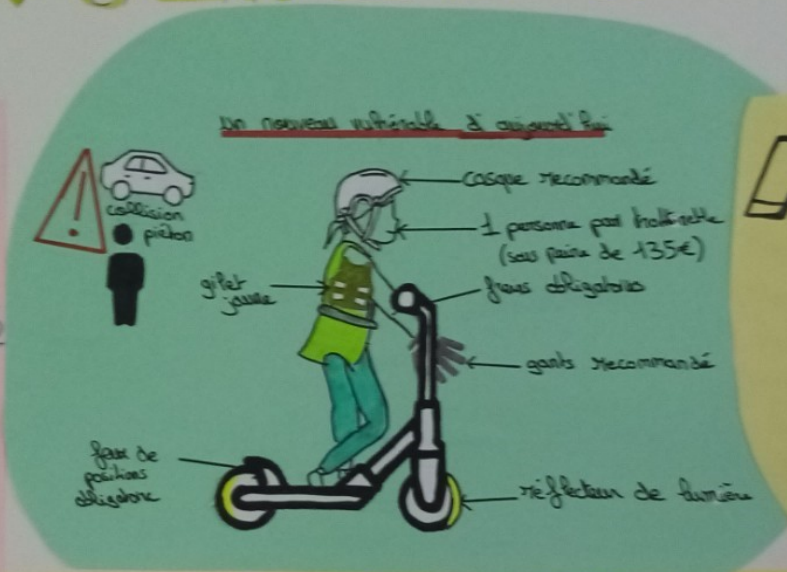 un nouveau vulnérable d'aujourd'hui
casque recommandé
collision
piéton
1 personne par trottinette
(sous peine de 135€)
gilet
jaune
freins obligatoires
gants recommandé
feux de
positions
obligatoire
réflecteur de lumière